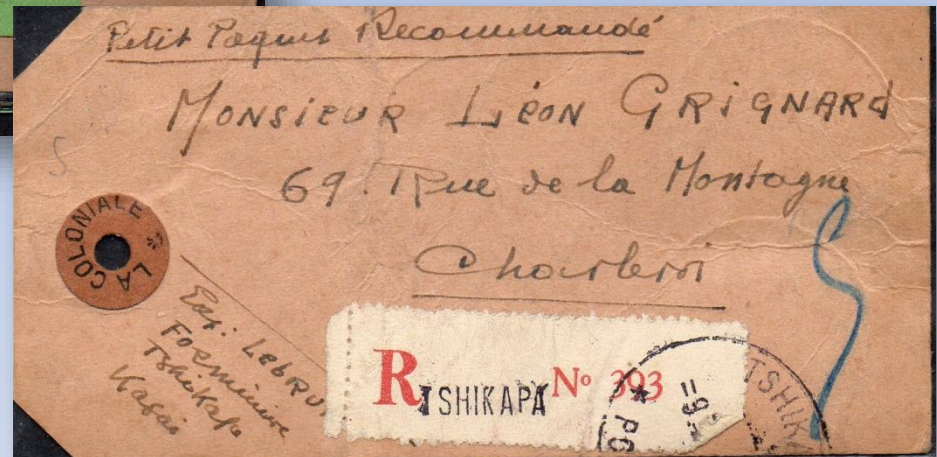 Petit Paquet Recommandé
MONSIEUR LÉON GRIGNARD
69 Rue de la Montagne
Charleroi
LA COLONIALE *
Exp: LEBRU
Forminière
Tshikapa
Kasai
R TSHIKAPA No 393
TSHIKA
=9-
* PO